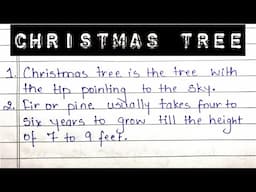 CHRISTMAS TREE
1. Christmas tree is the tree with
the tip pointing to the sky.
2. Fir or pine usually takes four to
six years to grow till the height
of 7 to 9 feet.